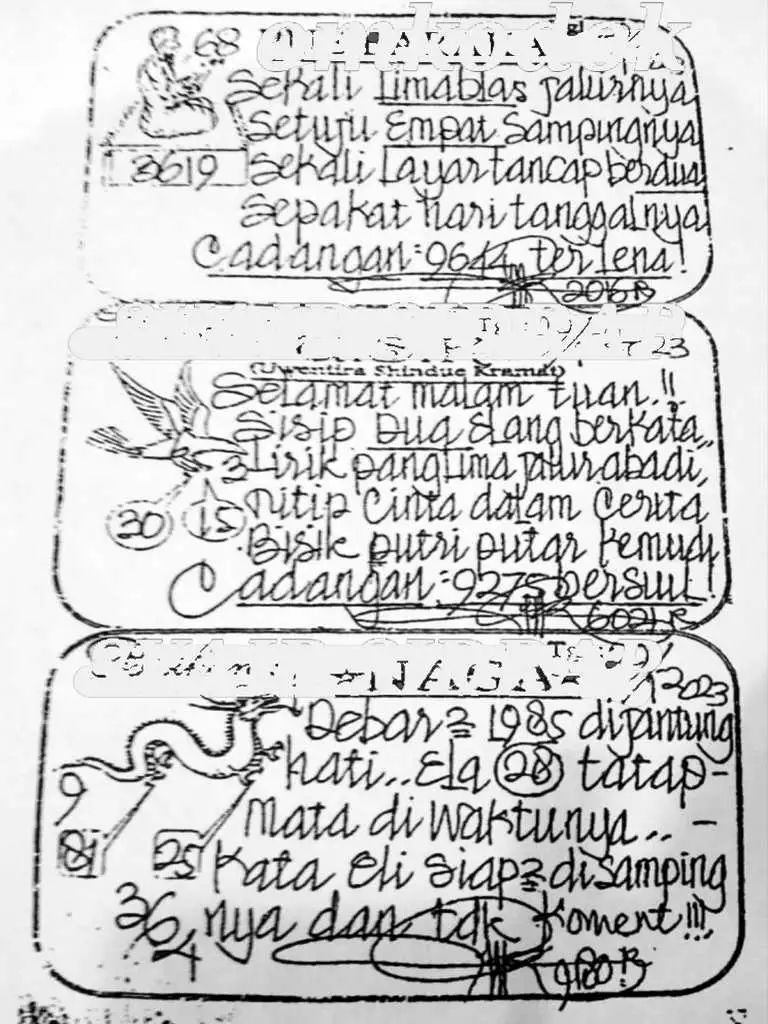 68
omkodok
Sekali Limablas jalurnya
Setuju Empat Sampingnya
3619
Sekali Layar tancap berdua
Sepakat hari tanggalnya
Cadangan: 9644 terlena!
2015 B
23
(Uwentira Shindue Kramat)
Selamat malam tuan.!!
Sisip Dua Elang berkata,,
3
Lirik panglima jalur abadi,
30 15
Titip Cinta dalam Cerita
Bisik putri putar kemudi
Cadangan: 9275 bersiul!
6021 B
★NAGA★
2023
Debar2 1985 dijantung
hati... Ela 28 tatap-
9
Mata di Waktunya.. -
81 25
Kata Eli Siap2 disamping
36
nya dan tdk koment!!!
4
9180 B